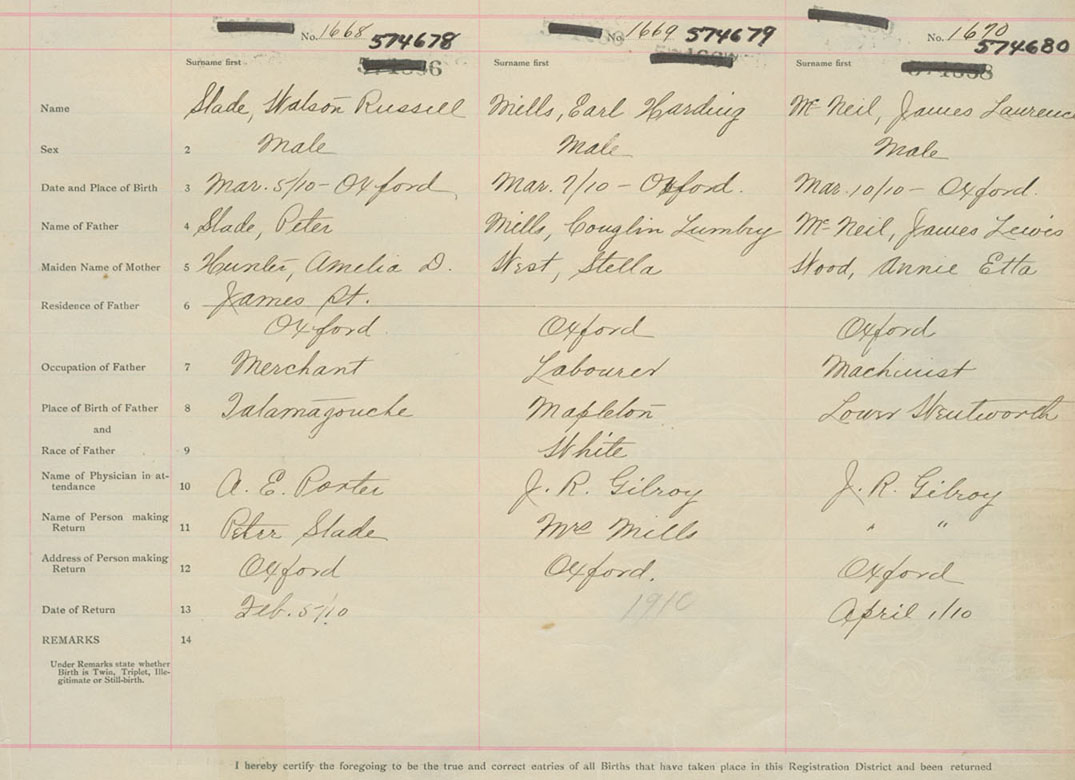 No. 1668 574678 No. 1669 574679 No. 1670 574680
Surname first Surname first Surname first
Name Slade, Watson Russell Mills, Earl Harding Mc Neil, James Laurenc
Sex 2 Male Male Male
Date and Place of Birth 3 Mar. 5/10 - Oxford Mar. 7/10 - Oxford. Mar. 10/10 - Oxford.
Name of Father 4 Slade, Peter Mills, Couglin Lumbry Mc Neil, James Lewis
Maiden Name of Mother 5 Hunter, Amelia D. West, Stella Wood, Annie Etta
Residence of Father 6 James St.
Oxford Oxford Oxford
Occupation of Father 7 Merchant Labourer Machinist
Place of Birth of Father 8 Tatamagouche Mapleton Lower Wentworth
and
Race of Father 9 White
Name of Physician in at-
tendance 10 A. E. Porter J. R. Gilroy J. R. Gilroy
Name of Person making
Return 11 Peter Slade Mrs Mills " "
Address of Person making
Return 12 Oxford Oxford. Oxford
Date of Return 13 Feb. 5/10 1910 April 1/10
REMARKS 14
Under Remarks state whether
Birth is Twin, Triplet, Ille-
gitimate or Still-birth.
I hereby certify the foregoing to be the true and correct entries of all Births that have taken place in this Registration District and been returned